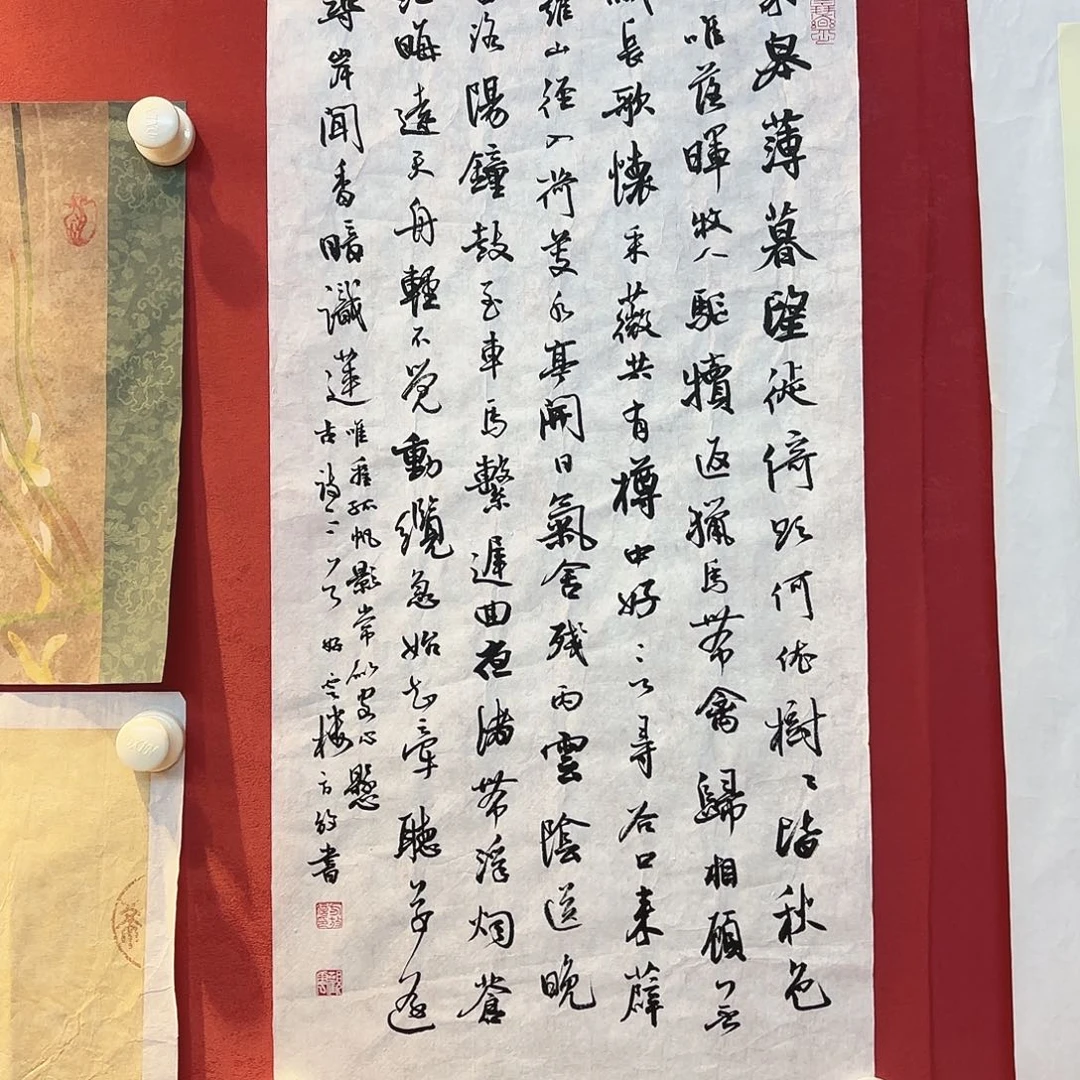 皋薄暮望徙倚欲何依樹〻皆秋色
唯落暉牧人駈犢返獵馬帶禽歸相顧無
識長歌懷采薇共有樽中好言尋谷口來薜
蘿山徑入荷芰水亭開日氣含殘雨雲陰送晚
洛陽鐘鼓至車馬繫遲回夜渚帶浮烟蒼
茫晦遠天舟輕不覺動纜急始知牽聽草遥
尋岸聞香暗識蓮
唯看孤帆影常似客心懸
古詩三首 好雲樓方放書